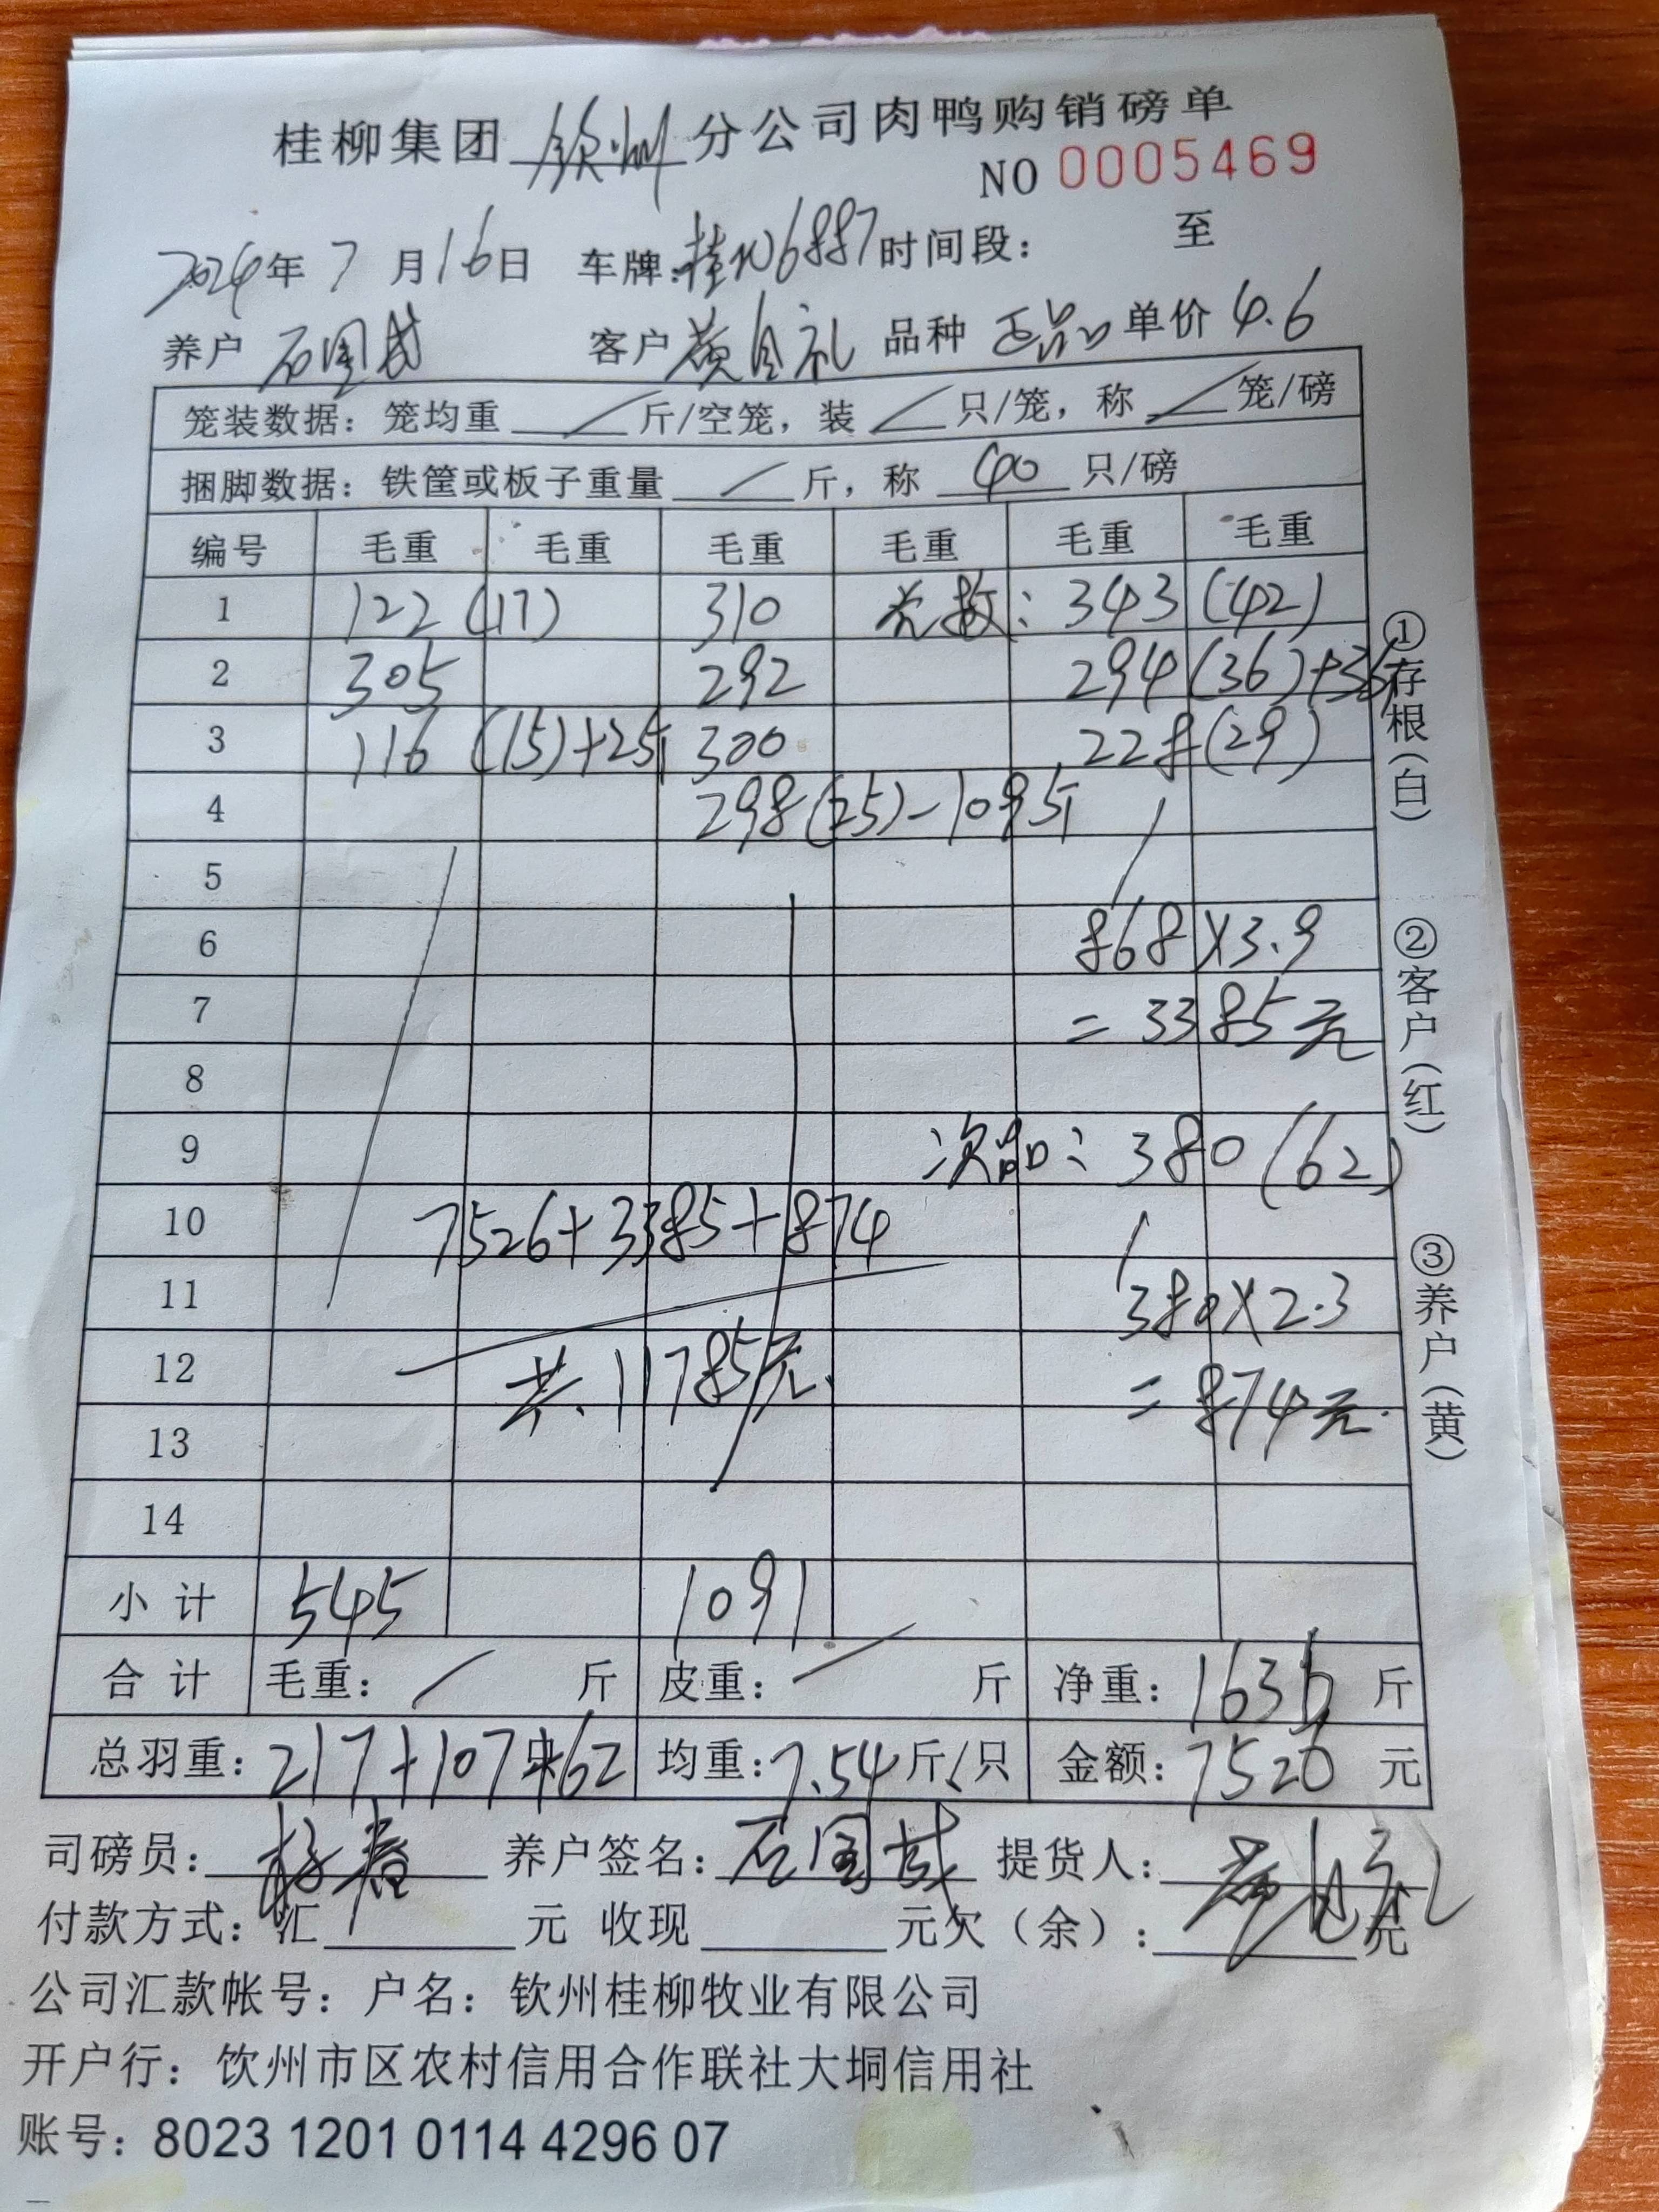 桂柳集团 钦州 分公司肉鸭购销磅单
NO 0005469
2024年 7 月16日 车牌:桂N06887时间段: 至
养户 石国 客户 黄自礼 品种 正品 单价 4.6
笼装数据: 笼均重 / 斤/空笼, 装 / 只/笼, 称 / 笼/磅
捆脚数据: 铁筐或板子重量 / 斤, 称 40 只/磅
编号 毛重 毛重 毛重 毛重 毛重 毛重
1 122 (17) 310 343 (42)
2 305 292 294 (36)+3斤
3 116 (15)+2斤 300 228 (29)
4 298 (25)-109斤
5
6 868×3.9
7 =3385元
8
9 次品: 380 (62)
10 7526+3385+874
11 380×2.3
12 共 11785元 =874元
13
14
小计 545 1091
合计 毛重: / 斤 皮重: / 斤 净重: 1636 斤
总羽重: 217+107+62 均重: 7.54 斤/只 金额: 7526 元
司磅员: 养户签名: 石国 提货人: 黄自礼
付款方式: 汇 元 收现 元欠(余): 元
公司汇款帐号: 户名: 钦州桂柳牧业有限公司
开户行: 饮州市区农村信用合作联社大垌信用社
账号: 8023 1201 0114 4296 07
①存根(白)
②客户(红)
③养户(黄)